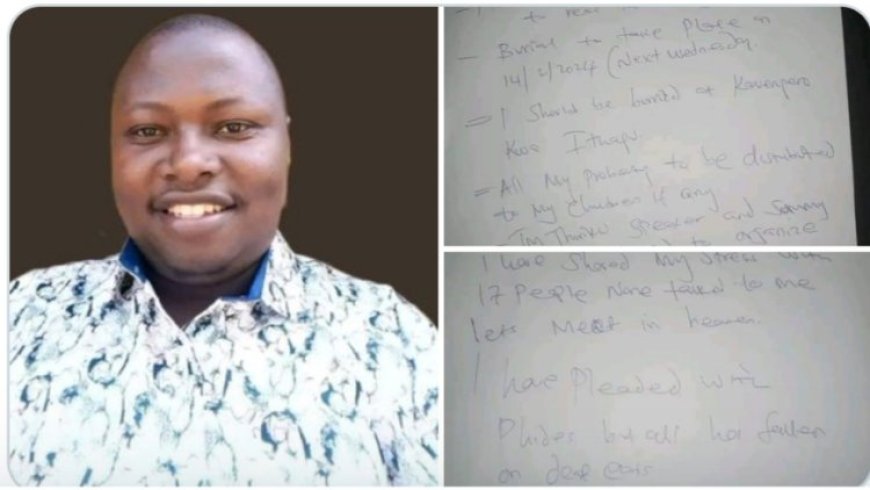 to
- Burial to take place on
14/2/2024 (Next Wednesday
= I Should be buried at
Kwa
= All My to be distributed
to My Children if any
Speaker and Sammy
to organize
I have Shared My Stress with
17 People None talked to me
lets Meet in heaven.
I have Pleaded with
but all has fallen
on deaf ears